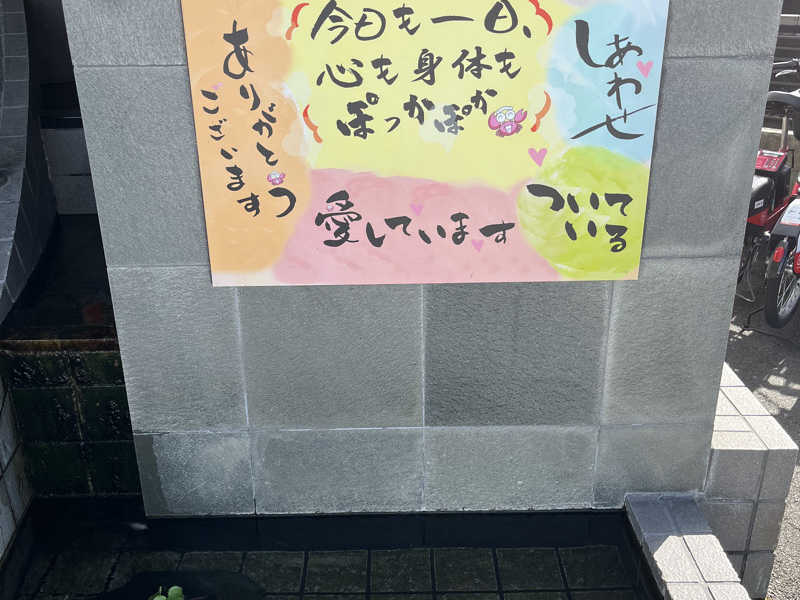 今日も一日、
心も身体も
ぽっかぽか
ありがとう
ございます
しあわせ
愛しています
ついて
いる